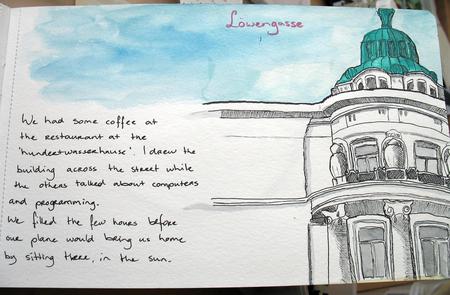 Löwengasse
We had some coffee at
the restaurant at the
'hundertwasserhaus'. I drew the
building across the street while
the others talked about computers
and programming.
We filled the few hours before
our plane would bring us home
by sitting there, in the sun.